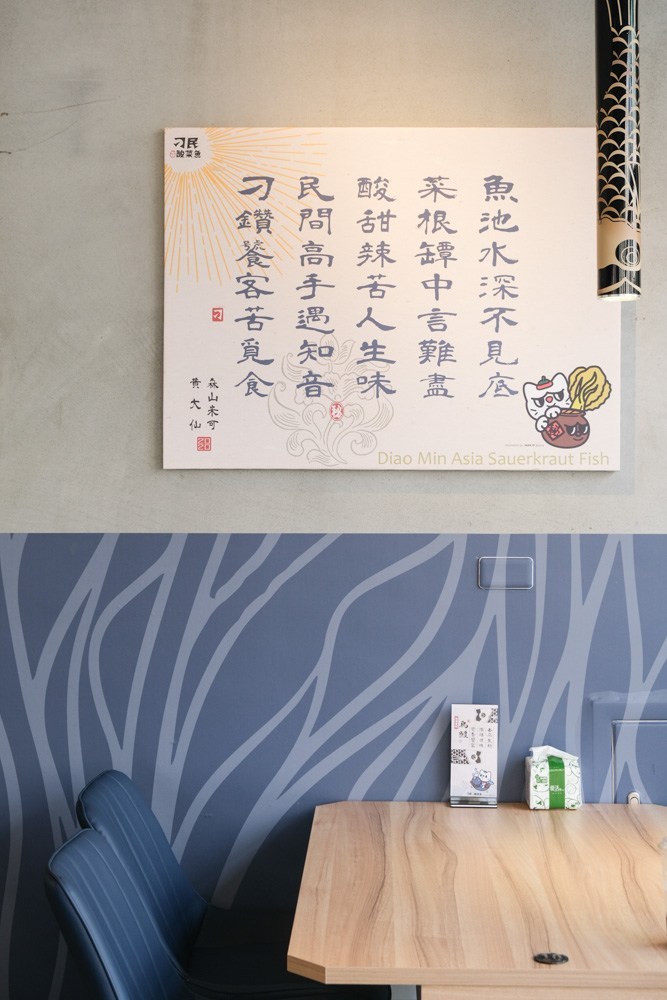 刁民
酸菜魚
刁鑽饕客苦覓食
民間高手遇知音
酸甜辣苦人生味
菜根罈中言難盡
魚池水深不見底
黃大仙
Diao Min Asia Sauerkraut Fish